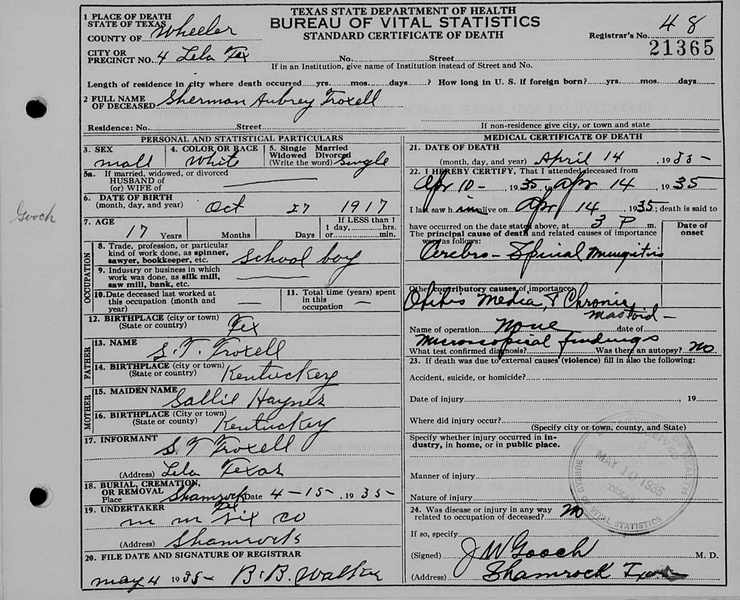 TEXAS STATE DEPARTMENT OF HEALTH
BUREAU OF VITAL STATISTICS
STANDARD CERTIFICATE OF DEATH
1 PLACE OF DEATH
STATE OF TEXAS
COUNTY OF Wheeler
Registrar's No. 48
21365
CITY OR
PRECINCT NO. 4 Lela Tex No. Street
If in an Institution, give name of Institution instead of Street and No.
Length of residence in city where death occurred yrs. mos. days ? How long in U. S. if foreign born? yrs. mos. days
2 FULL NAME
OF DECEASED Sherman Aubrey Troxell
Residence: No. Street
If non-residence give city, or town and state
PERSONAL AND STATISTICAL PARTICULARS
3. SEX 4. COLOR OR RACE 5. Single Married
Widowed Divorced
(Write the word)
mall White single
5a. If married, widowed, or divorced
HUSBAND OF
(or) WIFE OF
6. DATE OF BIRTH
(month, day, and year) Oct 27 1917
7. AGE 17 Years Months Days If LESS than
1 day,....hrs.
or....min.
OCCUPATION
8. Trade, profession, or particular
kind of work done, as spinner,
sawyer, bookkeeper, etc. School boy
9. Industry or business in which
work was done, as silk mill,
saw mill, bank, etc.
10. Date deceased last worked at
this occupation (month and
year)
11. Total time (years) spent
in this
occupation
12. BIRTHPLACE (city or town)
(State or country) Tex
FATHER
13. NAME S. T. Troxell
14. BIRTHPLACE (city or town)
(State or country) Kentuckey
MOTHER
15. MAIDEN NAME Sallie Haynes
16. BIRTHPLACE (city or town)
(State or country) Kentuckey
17. INFORMANT S. T Troxell
(Address) Lela Texas
18. BURIAL, CREMATION,
OR REMOVAL
Place Shamrock Tex Date 4-15-1935-
19. UNDERTAKER
m m Six co
(Address) Shamrock
20. FILE DATE AND SIGNATURE OF REGISTRAR
may 4 1935- B.B. Walker
MEDICAL CERTIFICATE OF DEATH
21. DATE OF DEATH
(month, day, and year) April 14 1935-
22. I HEREBY CERTIFY, That I attended deceased from
Apr 10- 1935, Apr 14 1935
I last saw him alive on Apr 14 1935; death is said to
have occurred on the date stated above, at 3 P m.
The principal cause of death and related causes of importance
were as follows:
Date of
onset
Cerebro-Spinal Mengitis
Other contributory causes of importance:
Otitis Media, & Chronic
Mastoid-
Name of operation None date of
Microscopical findings
What test confirmed diagnosis? Was there an autopsy? No
23. If death was due to external causes (violence) fill in also the following:
Accident, suicide, or homicide?
Date of injury , 19
Where did injury occur?
(Specify city or town, county, and State)
Specify whether injury occurred in in-
dustry, in home, or in public place.
Manner of injury
Nature of injury
24. Was disease or injury in any way
related to occupation of deceased? No
If so, specify
(Signed) J W Gooch M. D.
(Address) Shamrock Tex
Gooch
RECEIVED
MAY 10 1935
TEXAS
BUREAU OF VITAL STATISTICS